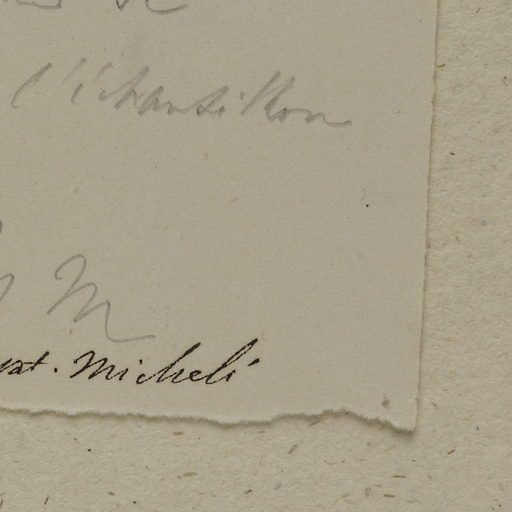 l'échantillon
M
xt. Micheli